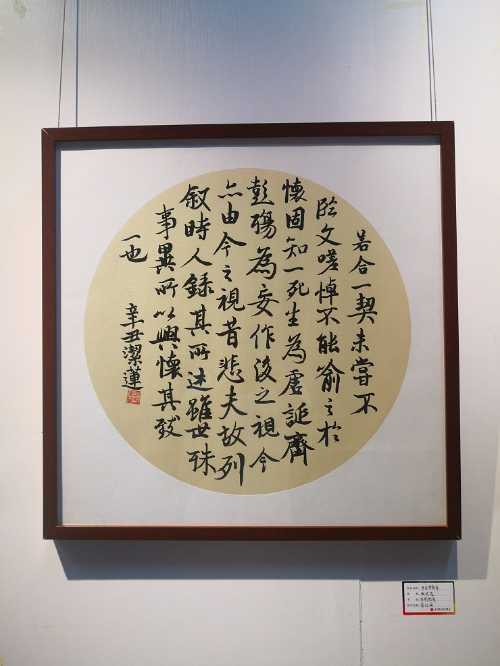 若合一契未嘗不
臨文嗟悼不能喻之於
懷固知一死生為虛誕齊
彭殤為妄作後之視今
亦由今之視昔悲夫故列
叙時人錄其所述雖世殊
事異所以興懷其致
一也
辛丑潔蓮